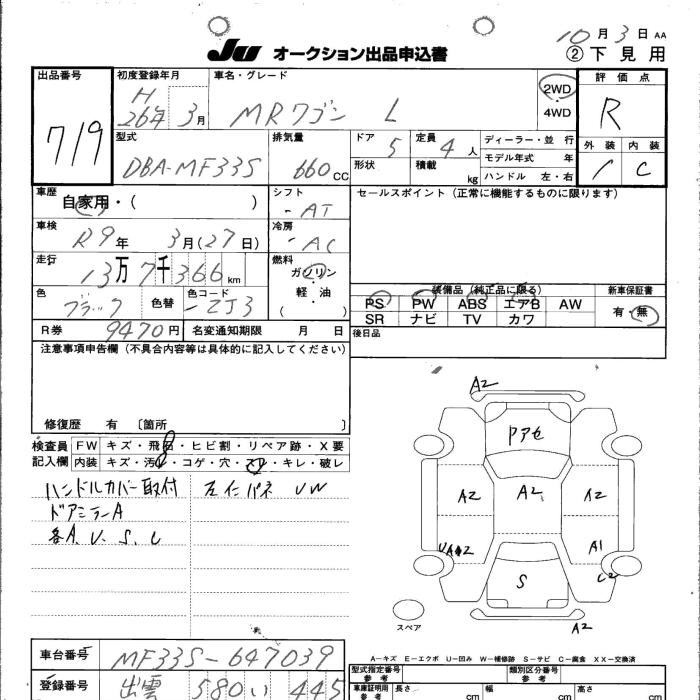 10月3日 AA
JU オークション出品申込書 ②下見用
出品番号 719
初度登録年月 H 26年 3月
車名・グレード MRワゴン L
2WD
4WD
評価点 R
外装 内装 C
型式 DBA-MF33S
排気量 660 CC
ドア 5
定員 4人
形状
積載 kg
ディーラー・並 行
モデル年式 年
ハンドル 左・右
車歴 自家用・( )
シフト -AT
セールスポイント (正常に機能するものに限ります)
車検 R9年 3月(27日)
冷房 -AC
走行 13万7千366km
燃料 ガソリン・軽・油 ( )
色 ブラック 色替 色コード -ZJ3
装備品 (純正品に限る) 新車保証書
PS PW ABS エアB AW 有・無
SR ナビ TV カワ
R券 9470円 名変通知期限 月 日
後日品
注意事項申告欄 (不具合内容等は具体的に記入してください)
修復歴 有 〔箇所 〕
検査員記入欄
FW キズ・飛石・ヒビ割・リペア跡・X要
内装 キズ・汚レ・コゲ・穴・スレ・キレ・破レ
ハンドルカバー取付
ドアミラーA
各A、U、S、C
UW
A2
A2
A2
A2
A1
C2
S
A2
スペア
A-キズ E-エクボ U-凹み W-補修跡 S-サビ C-腐食 XX-交換済
車台番号 MF33S-647039
登録番号 出雲 580 い 445
型式指定番号 参考
類別区分番号 参考
車庫証明用 参考 長さ cm 幅 cm 高さ cm